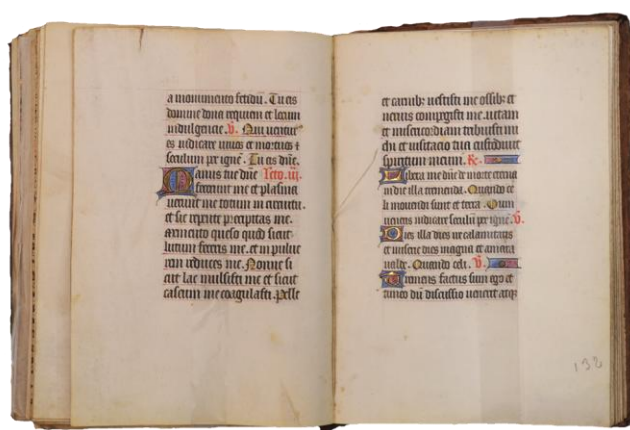 a monumento fetidũ. Tu eis
domine dona requiem et locum
indulgencie. V. Qui uentur
es iudicare uiuos et mortuos ⁊
seculum per ignẽ. Tu eis dñe.
Manus tue dñe Lcto. iii.
fecerunt me et plasma
uerunt me totum in circuitu.
et sic repente precipitas me.
memento queso quod sicut
lutum feceris me. et in pulue
rem reduces me. Nonne si
cut lac mulsisti me et sicut
caseum me coagulasti. Pelle
et carnibꝫ uestisti me ossibꝫ et
neruis compegisti me. uitam
et misericordiam tribuisti mi
chi et uisitacio tua custodiuit
spiritum meum. R.
Libera me dñe de morte eterna
in die illa tremenda. Quando ce
li mouendi sunt et terra. Dum
ueneris iudicare seculũ per ignẽ. V.
Dies illa dies ire calamitatis
et miserie dies magna et amara
ualde. Quando celi. V.
Tremens factus sum ego et
timeo dũ discussio uenerit atqꝫ
132